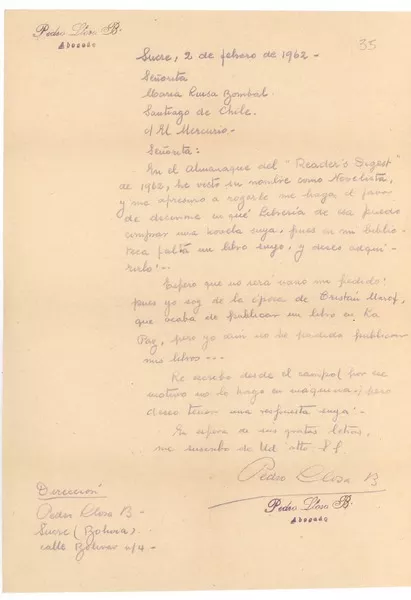 Pedro Llosa B.
Abogado
35
Sucre, 2 de febrero de 1962.-
Señorita
Maria Luisa Bombal.
Santiago de Chile.
a/ El Mercurio.-
Señorita:
En el Almanaque del "Reader's Digest"
de 1962, he visto su nombre como Novelista,
y me apresuro a rogarle me haga el favor
de decirme en qué Librería de esa puedo
comprar una novela suya, pues en mi biblio-
teca falta un libro suyo, y deseo adqui-
rirlo.-
Espero que no será vano mi pedido,
pues yo soy de la época de Cristián Marof,
que acaba de publicar un libro en La
Paz, pero yo aún no he podido publicar
mis libros...
Le escribo desde el campo (por ese
motivo no lo hago en maquina) pero
deseo tener una respuesta suya.-
En espera de sus gratas letras,
me suscribo de Ud. atto. S.S.
Pedro Llosa B
Pedro Llosa B.
Abogado
Dirección
Pedro Llosa B-
Sucre (Bolivia)
calle Bolivar